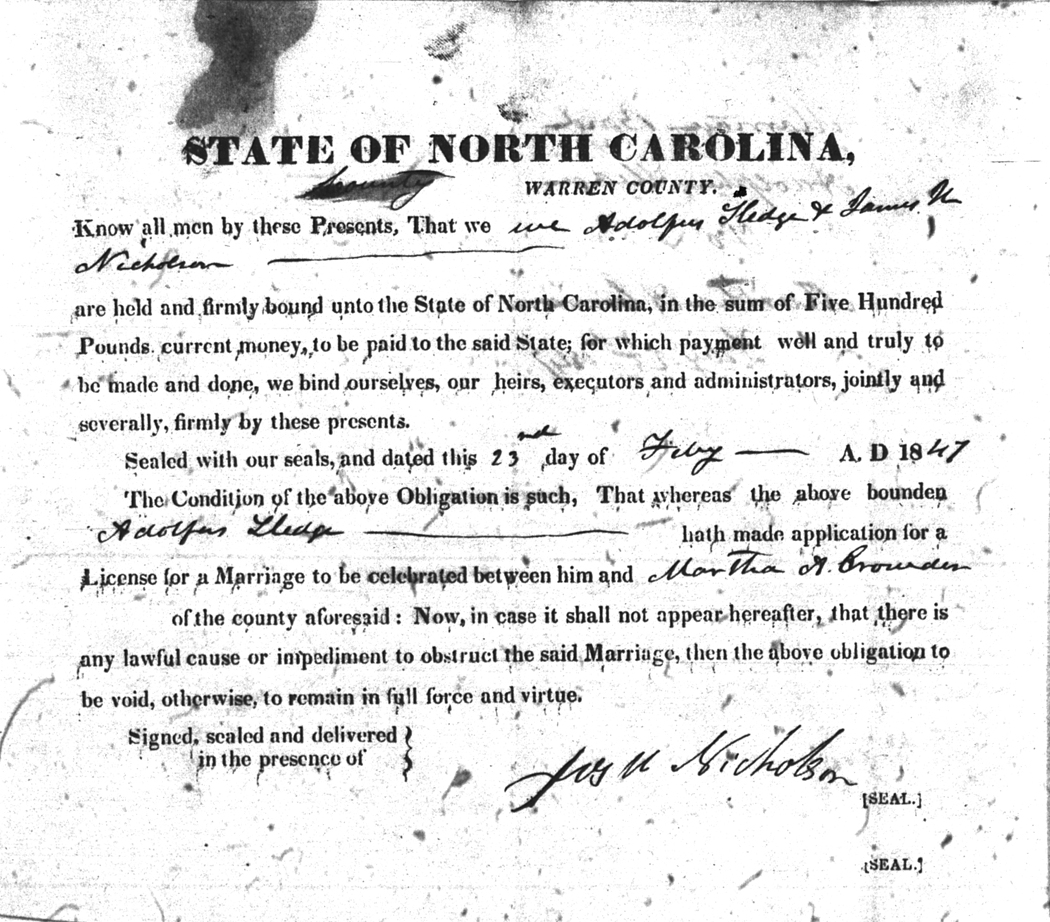 STATE OF NORTH CAROLINA,
County WARREN COUNTY.
Know all men by these Presents, That we we Adolfus Sledge & James N
Nicholson
are held and firmly bound unto the State of North Carolina, in the sum of Five Hundred
Pounds current money, to be paid to the said State; for which payment well and truly to
be made and done, we bind ourselves, our heirs, executors and administrators, jointly and
severally, firmly by these presents.
Sealed with our seals, and dated this 23nd day of Feby A. D 1847
The Condition of the above Obligation is such, That whereas the above bounden
Adolfus Sledge hath made application for a
License for a Marriage to be celebrated between him and Martha A. Crowder
of the county aforesaid: Now, in case it shall not appear hereafter, that there is
any lawful cause or impediment to obstruct the said Marriage, then the above obligation to
be void, otherwise, to remain in full force and virtue.
Signed, sealed and delivered
in the presence of
Jas N Nicholson
[SEAL.]
[SEAL.]